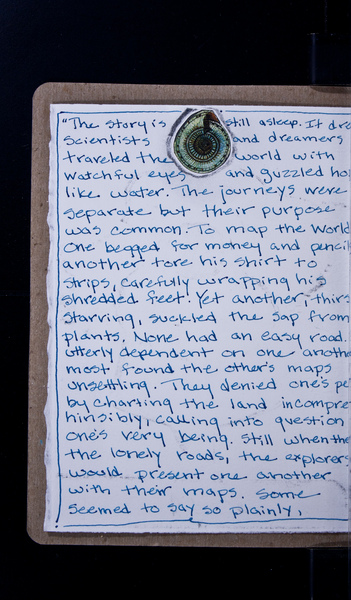 "The story is still asleep. It dre
Scientists and dreamers
traveled the world with
watchful eyes and guzzled ho
like water. The journeys were
separate but their purpose
was common. To map the World
One begged for money and pencil
another tore his shirt to
strips, carefully wrapping his
shredded feet. Yet another, thirs
starving, suckled the sap from
plants. None had an easy road.
Utterly dependent on one anothe
most found the other's maps
unsettling. They denied one's pe
by charting the land incompre
hinsibly, calling into question
one's very being. Still when the
the lonely roads, the explorer
would present one another
with their maps. Some
seemed to say so plainly,